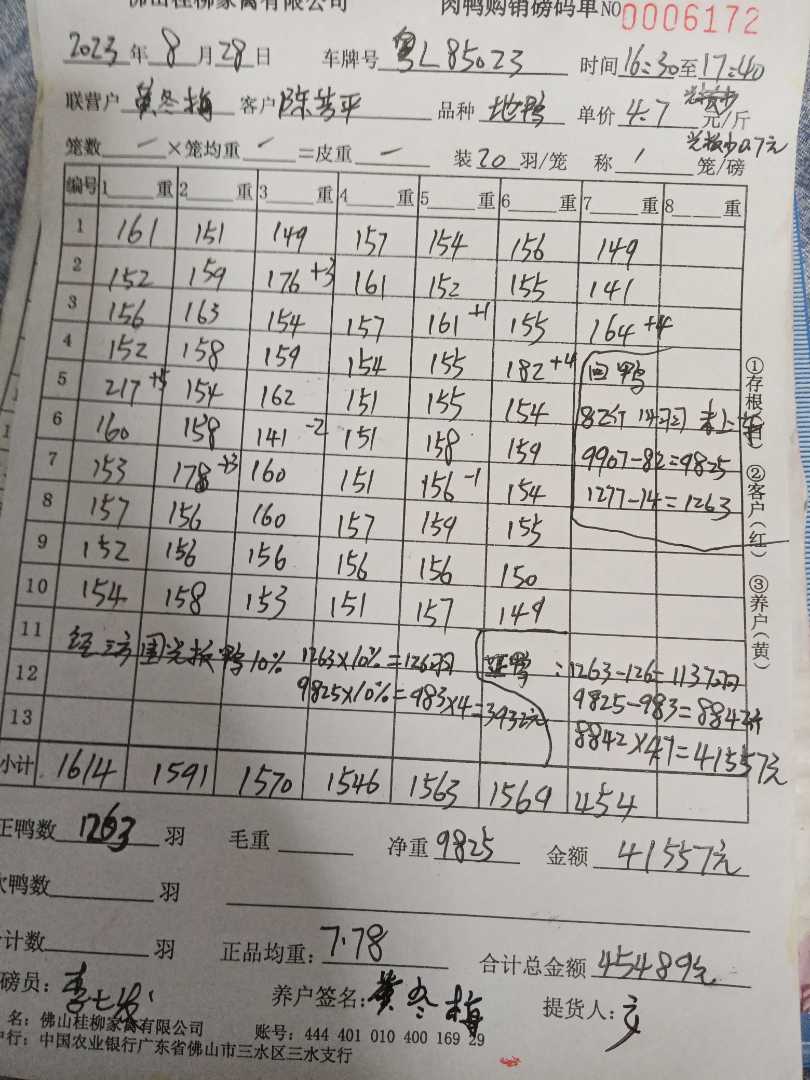 佛山桂柳家禽有限公司 肉鸭购销磅码单 NO 0006172
2023 年 8 月 28 日 车牌号 粤L85023 时间 16:30 至 17:40
联营户 黄冬梅 客户 品种 地鸭 单价 4.7 元/斤
0.7元
笼数 — ×笼均重 — =皮重 — 装 20 羽/笼 称 1 笼/磅
编号 1 重 2 重 3 重 4 重 5 重 6 重 7 重 8 重
1 161 151 149 157 154 156 149
2 152 159 176 +3 161 152 155 141
3 156 163 154 157 161 +1 155 164 +4
4 152 158 159 154 155 182 +4 回鸭
5 217 +5 154 162 151 155 154 82斤 14羽 未上车
6 160 158 141 -2 151 158 159 9907-82=9825
7 153 178 +3 160 151 156 -1 154 1277-14=1263
8 157 156 160 157 159 155
9 152 156 156 156 156 150
10 154 158 153 151 157 149
11 鸭10% 1263×10%=126羽 正鸭:1263-126=1137羽
12 9825×10%=983×4=3932元 9825-983=8842斤
13 8842×4.7=41557元
小计 1614 1591 1570 1546 1563 1569 454
正鸭数 1263 羽 毛重 净重 9825 金额 41557元
次鸭数 羽
合计数 羽 正品均重: 7.78 合计总金额 45489元
磅员: 养户签名: 黄冬梅 提货人:
名: 佛山桂柳家禽有限公司 账号: 444 401 010 400 169 29
户行: 中国农业银行广东省佛山市三水区三水支行
①存根(白) ②客户(红) ③养户(黄)